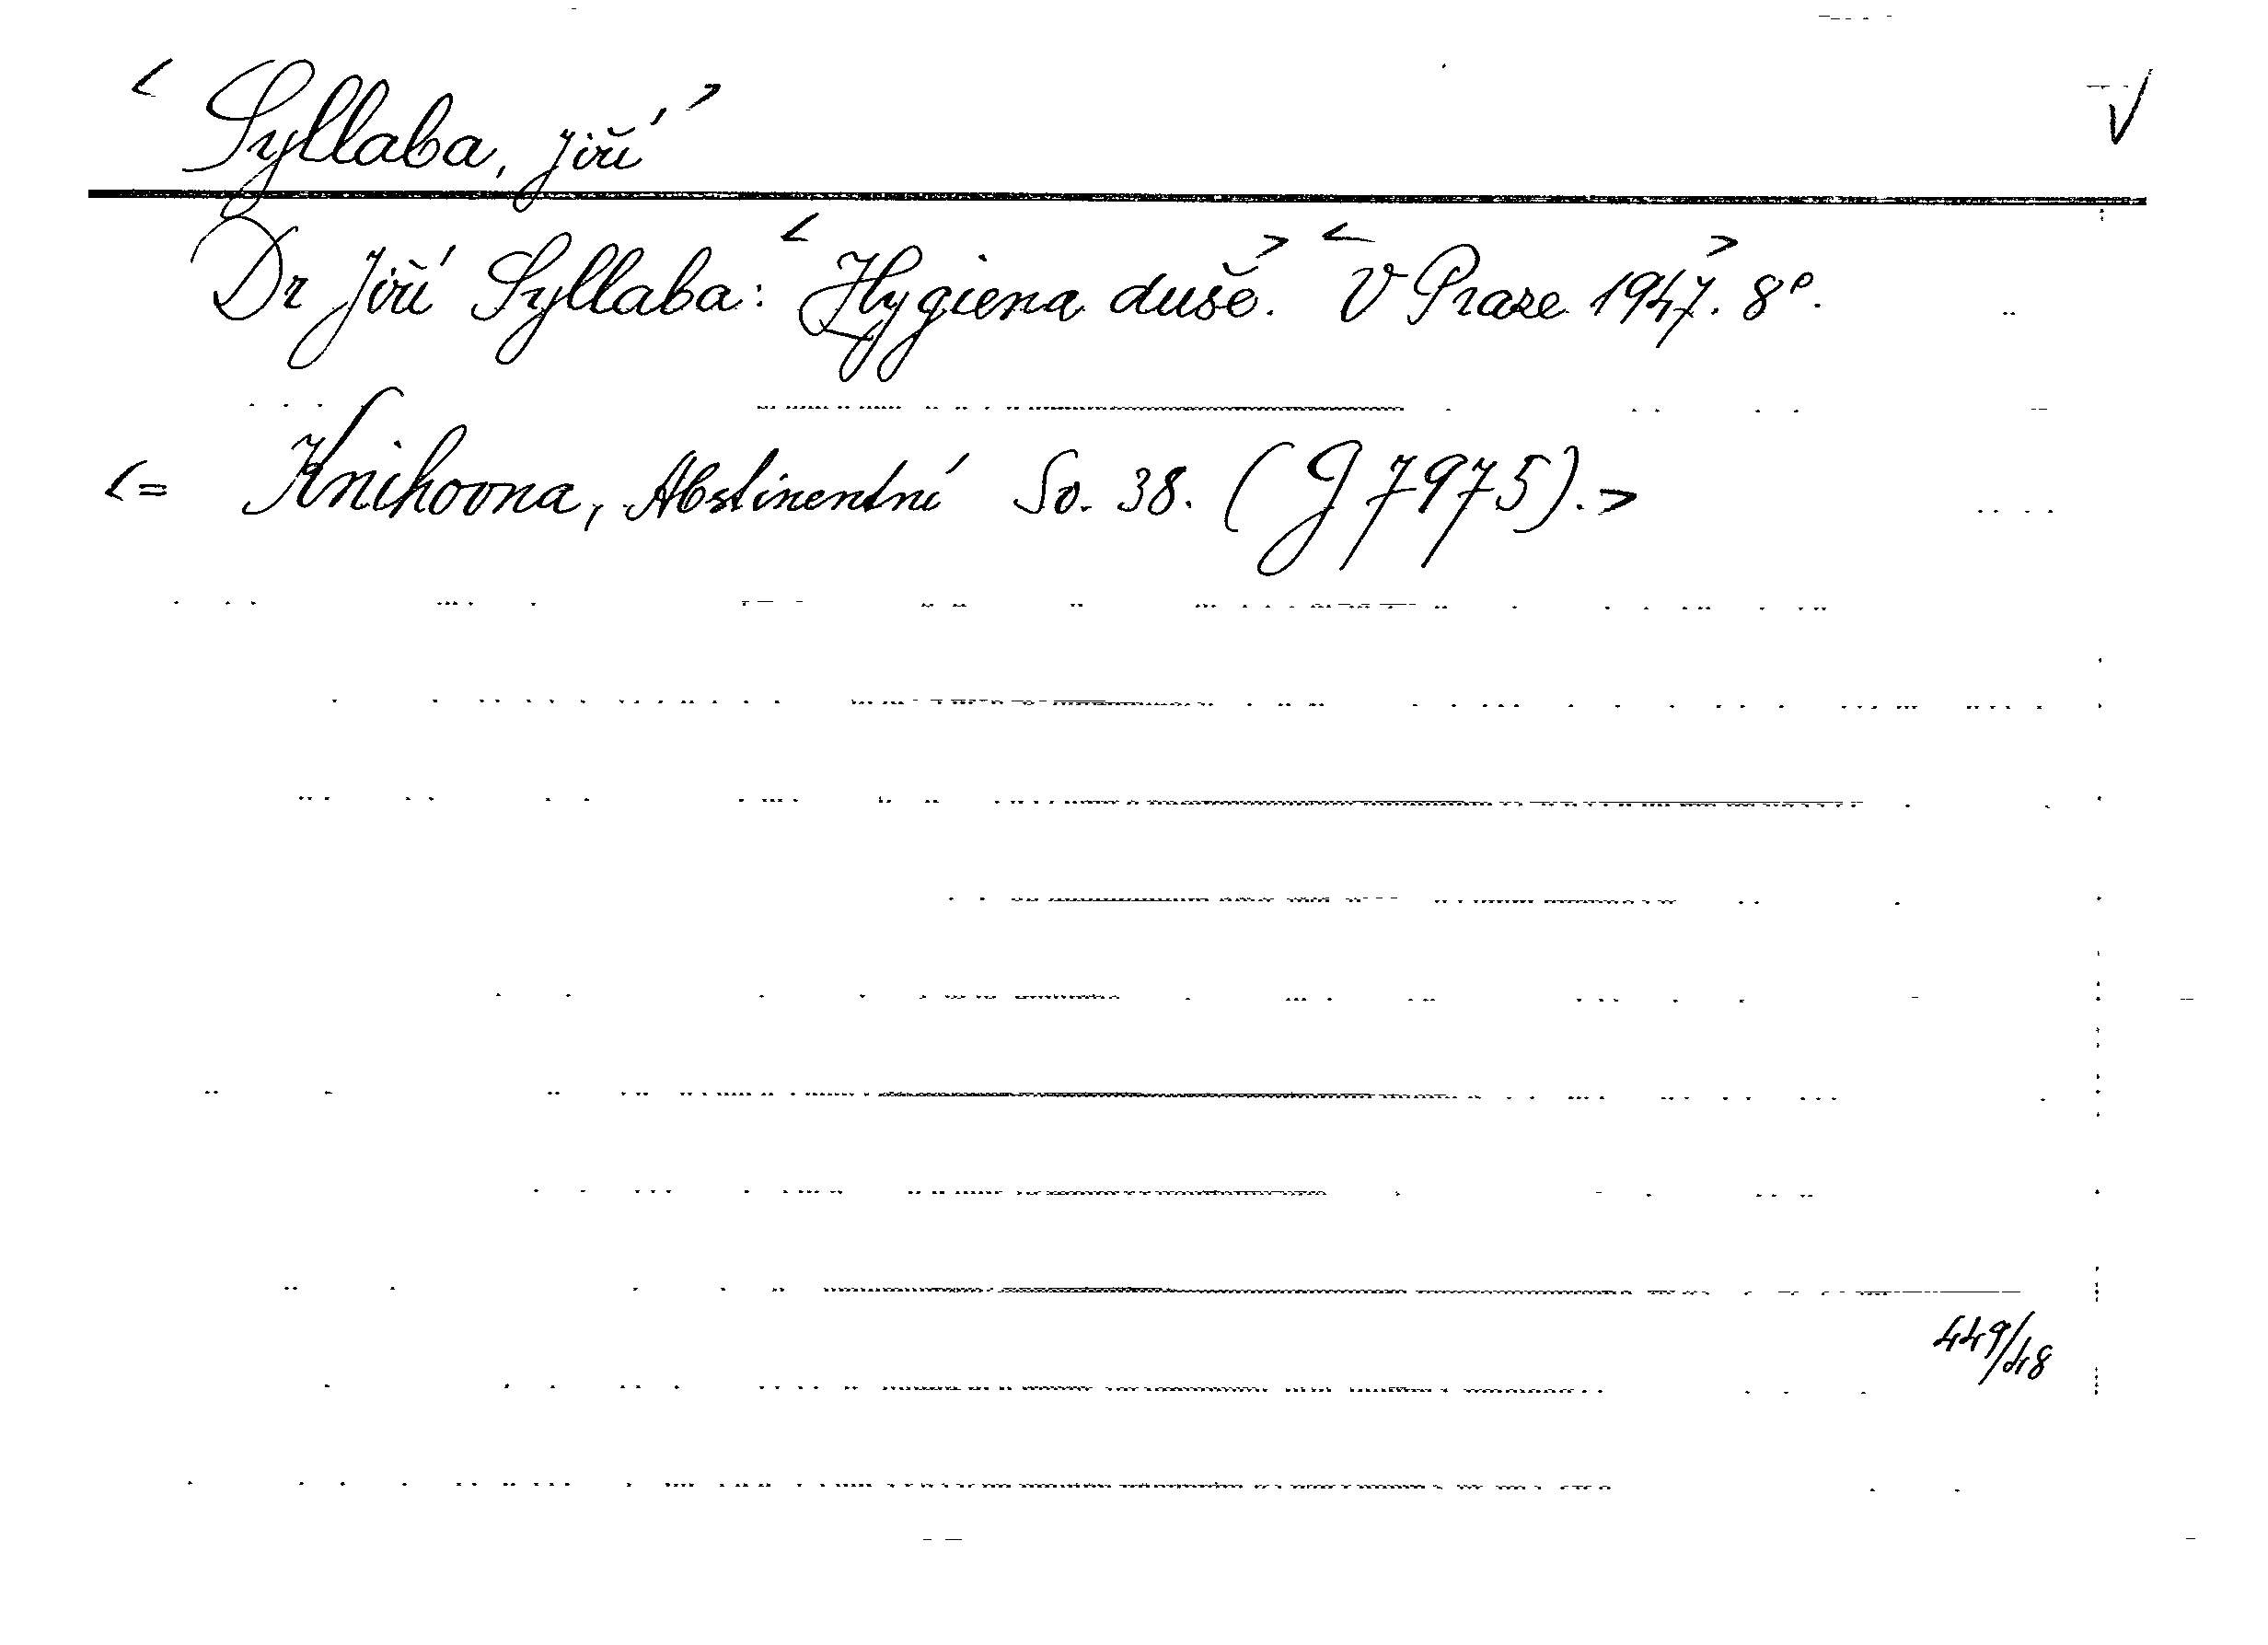 < Syllaba, Jiří > V
Dr Jiří Syllaba: < Hygiena duše. > < V Praze 1947. > 8°.
<= Knihovna, Abstinentní Sv. 38. (G 7975). >
449/48